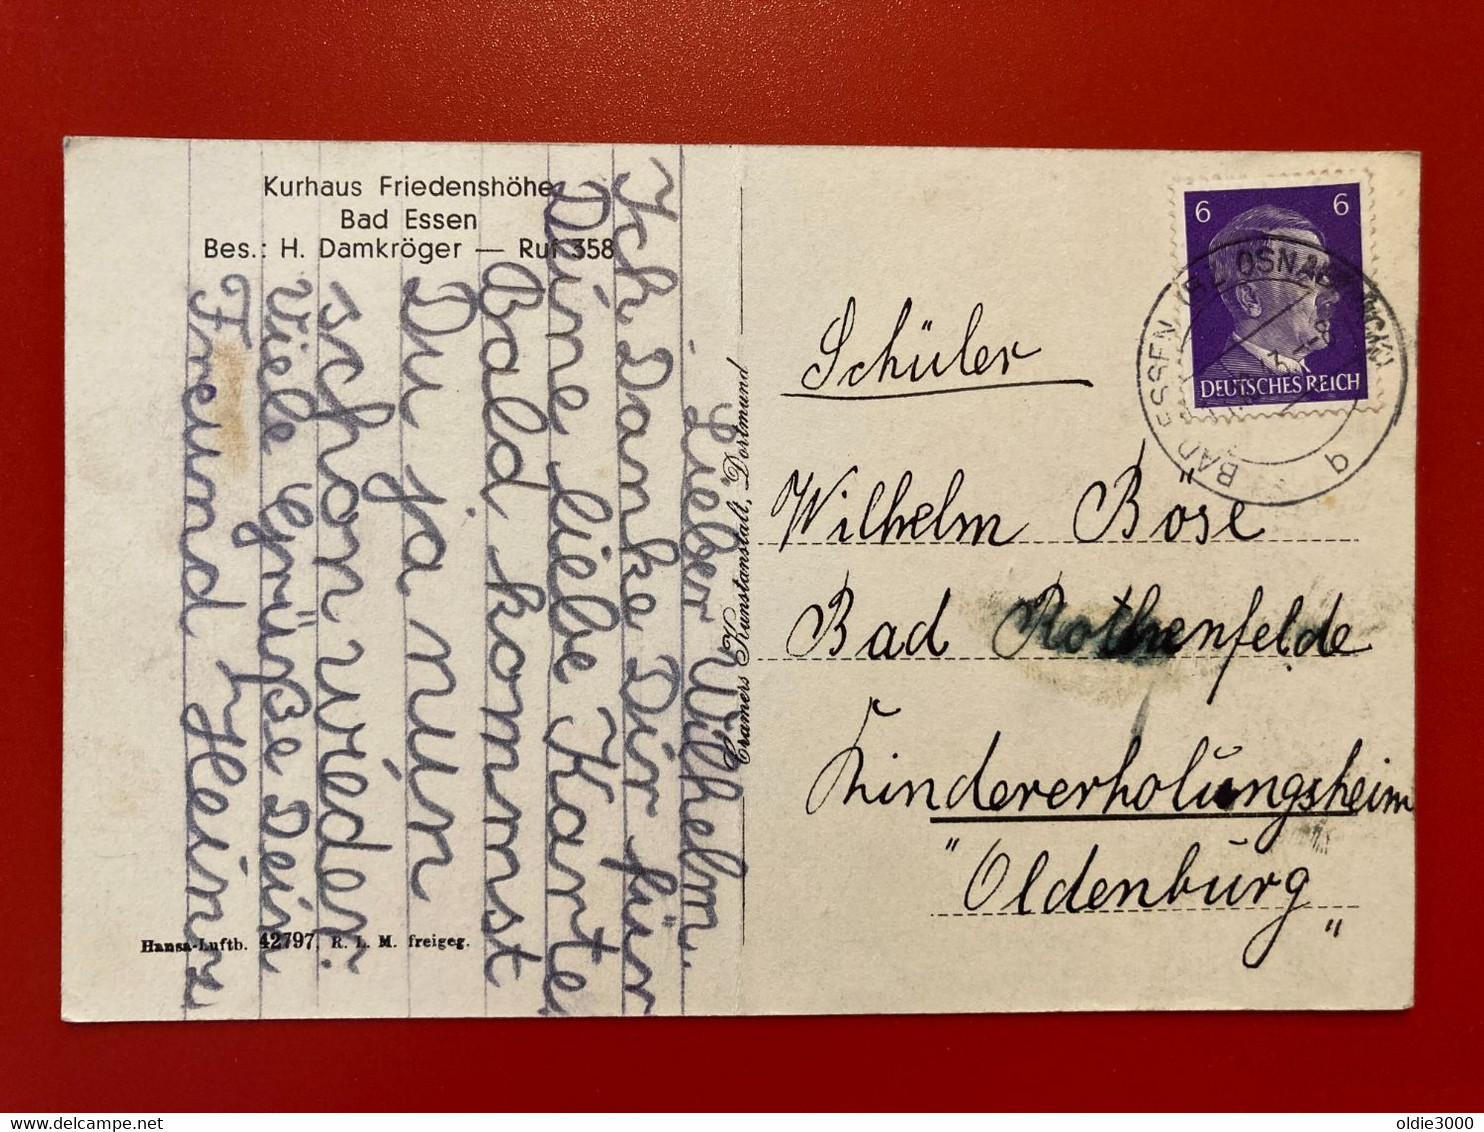 Kurhaus Friedenshöhe
Bad Essen
Bes.: H. Damkröger — Ruf 358
Lieber Wilhelm.
Ich Danke Dir für
Deine liebe Karte
Bald kommst
Du ja nun
schon wieder.
Viele Grüße Dein
Freund Heinz
Hansa-Luftb. 42797, R. L. M. freigeg.
Cramers Kunstanstalt, Dortmund
6 6
DEUTSCHES REICH
BAD ESSEN (BZ OSNABRÜCK)
b
Schüler
Wilhelm Bose
Bad Rothenfelde
Kindererholungsheim
"Oldenburg"
oldie3000